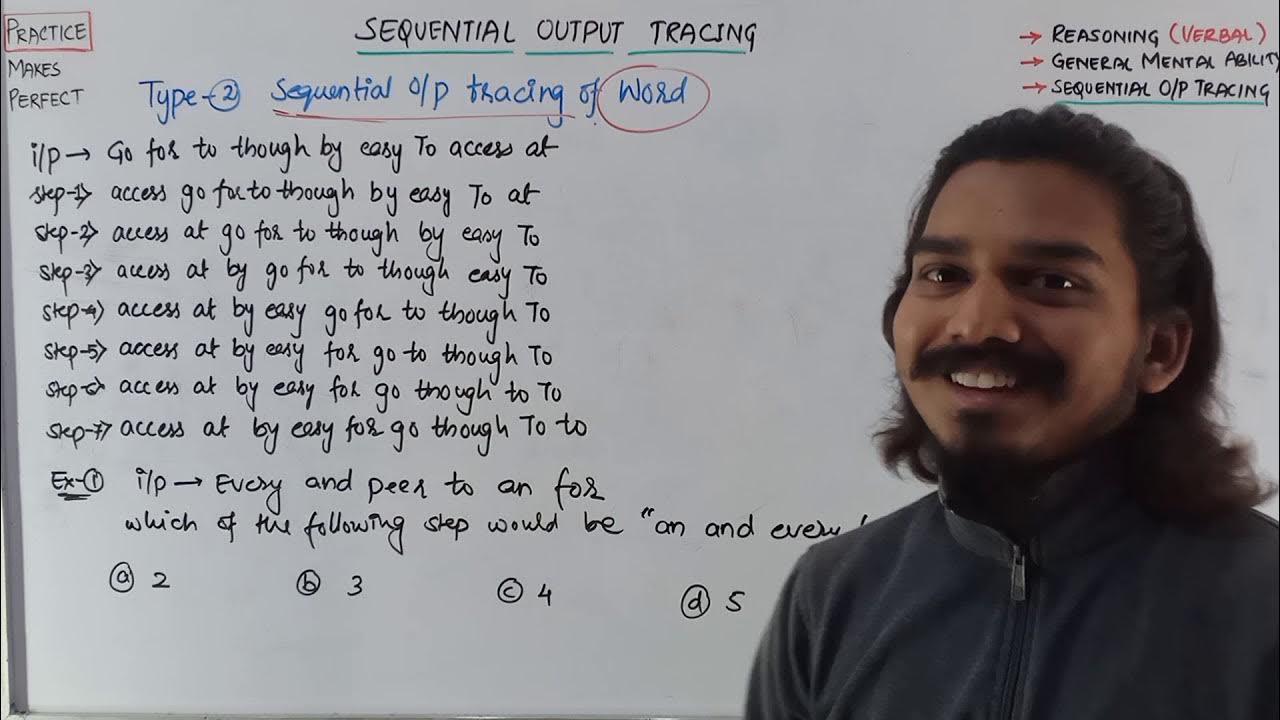 PRACTICE
MAKES
PERFECT
SEQUENTIAL OUTPUT TRACING
→ REASONING (VERBAL)
→ GENERAL MENTAL ABILITY
→ SEQUENTIAL O/P TRACING
Type-② Sequential O/p tracing of Word
i/p → Go for to though by easy To access at
step-1> access go for to though by easy To at
step-2> access at go for to though by easy To
step-3> access at by go for to though easy To
step-4> access at by easy go for to though To
step-5> access at by easy for go to though To
step-6> access at by easy for go though to To
step-7> access at by easy for go though To to
Ex-① i/p → Every and peer to an for
which of the following step would be "an and every
ⓐ 2 ⓑ 3 ⓒ 4 ⓓ 5